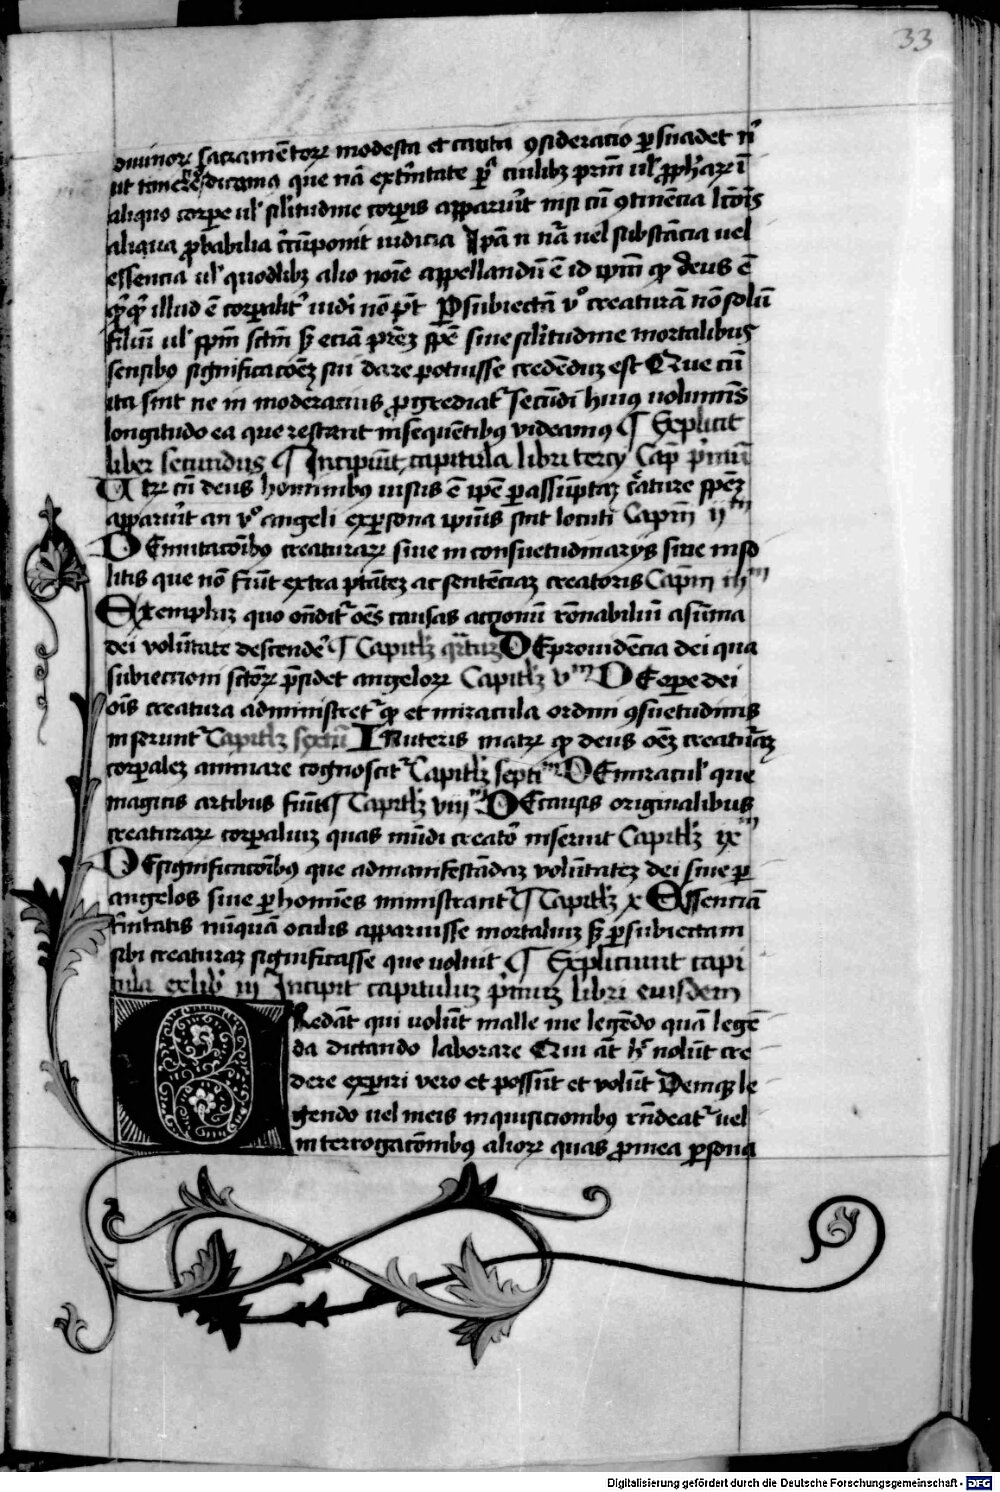 33
diuinoꝝ sacramẽtoꝝ modesta et cauta ꝯsideracio ꝑsuadet nͥ
ut temere dicamꝰ que nã ex tͥnitate ꝑ cuilibꝫ prẽm ul̕ ꝓph̕aꝝ ĩ
aliquo corpe ul̕ sil̕itudine corpis apparuit nisi cũ ꝯtinẽcia lc̃õis
aliqua ꝓbabilia cͥcũponit iudicia Ipã n nã uel substãcia uel
essencia ul̕ quodlibꝫ alio noĩe appellandũ ẽ id ipm̃ qͦ deus ẽ
qͥcqͥd illud ẽ corpalit̕ uidi nõ pt̃ Ꝑ subiectã vͦ creaturã nõ solũ
filiũ ul̕ spm̃ sctm̃ sꝫ eciã prẽꝫ spẽ siue sil̕itudine mortalibus
sensibꝰ significacõeꝫ sui dare potuisse credẽdũ est Que cũ
ita sint ne in moderacius ꝓgrediat᷑ secũdi huiꝰ uoluminis
longitudo ea que restant in sequẽtibꝰ videamꝰ ¶ Explicit
liber secundus ¶ Incipiũt capitula libri tercij Cap pͥmũ
Utꝝ cũ deus hominibꝰ uisus ẽ ipẽ ꝑ assũptaꝫ cͣature spẽꝫ
apparuit an vͦ angeli ex ꝑsona ipiũs sint locuti Capm̃ iiᵐ
DE mutacõibꝰ creaturaꝝ siue in consuetudinarijs siue inso
litis que nõ fiũt extra ptãteꝫ ac sentẽciaꝫ creatoris Capm̃ iiiᵐ
Exempluꝫ quo oñdit᷑ oẽs causas accionũ rõnabiliũ a sũma
dei volũtate descendẽ ¶ Capitl̕ꝫ qͣrtuꝫ DE prouidẽcia dei qua
subiectioni sctoꝝ p̃sidet angeloꝝ Capitl̕ꝫ vᵐ DE oꝑe dei
oĩs creatura administret᷑ qͦ et miracula ordini ꝯsuetudinis
inserunt᷑ Capitl̕ꝫ sextũ IN uteris matrꝫ qͦ deus oẽꝫ creaturaꝫ
corpaleꝫ animare cognoscit᷑ Capitl̕ꝫ septiᵐ DE miracul̕ que
magicis artibus fiũt ¶ Capitl̕ꝫ viiiᵐ DE causis originalibus
creaturaꝝ corpaliuꝫ quas mũdi creatoꝛ inseruit Capitl̕ꝫ ixᵐ
DE significacõibꝰ que ad manifestãdaꝫ volũtateꝫ dei siue ꝑ
angelos siue ꝑ homĩes ministrant᷑ ¶ Capitl̕ꝫ x Essenciã
tͥnitatis nũquã oculis apparuisse mortaliuꝫ sꝫ ꝑ subiectam
sibi creaturaꝫ significasse que voluit ¶ Expliciunt capi
tula ex libꝛ iii Incipit capituluꝫ pͥmuꝫ libri eiusdem
CRedãt qui volũt malle me legẽdo quã legẽ
da dictando laborare Qui aũt hͦ nolũt cre
dere experiri vero et possũt et volũt Denique le
gendo uel meis inquisicionibꝰ rñdeat᷑ uel
interrogacõnibꝰ alioꝝ quas ꝓ mea ꝑsona
Digitalisierung gefördert durch die Deutsche Forschungsgemeinschaft - DFG